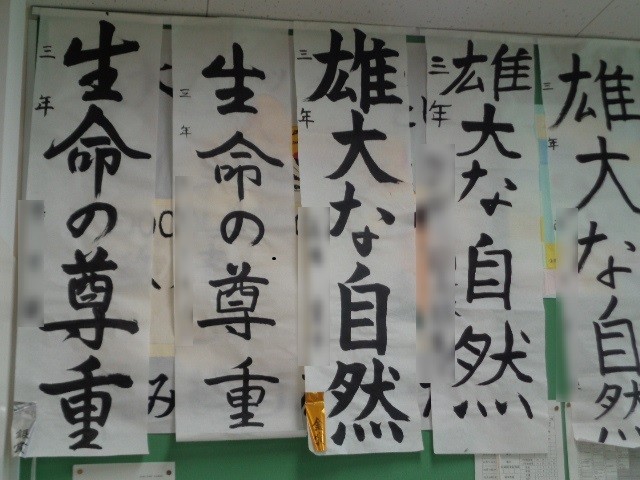 生命の尊重
三年
生命の尊重
三年
雄大な自然
三年
雄大な自然
三年
雄大な自然
三年